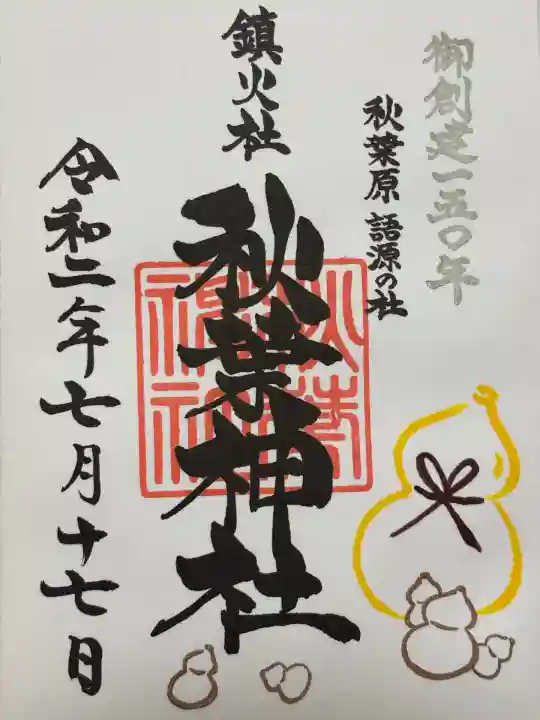 御創建一五〇年
秋葉原 語源の社
鎮火社
秋葉神社
秋葉神社
令和二年七月十七日